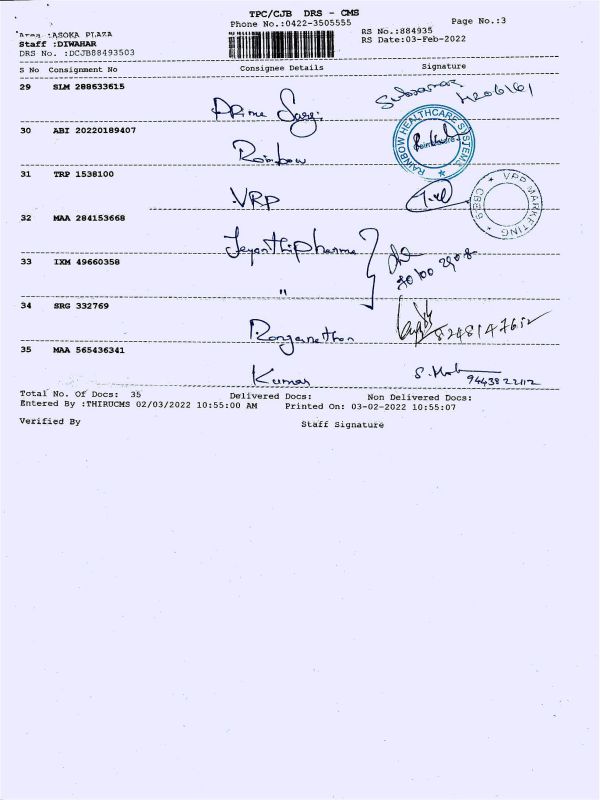 TPC/CJB DRS - CMS
Phone No.:0422-3505555 Page No.:3
Area :ASOKA PLAZA RS No.:884935
Staff :DIWAHAR RS Date:03-Feb-2022
DRS No. :DCJB88493503
S No Consignment No Consignee Details Signature
29 SLM 288633615
Prime
30 ABI 20220189407
Rainbow
RAINBOW HEALTHCARE SYSTEMS
31 TRP 1538100
VRP
VPP MARKETING
CBE-9
32 MAA 284153668
Jeyanthi Pharma
33 IXM 49660358
"
34 SRG 332769
Ranganathan
8248147612
35 MAA 565436341
Kumar
9443822112
Total No. Of Docs: 35 Delivered Docs: Non Delivered Docs:
Entered By :THIRUCMS 02/03/2022 10:55:00 AM Printed On: 03-02-2022 10:55:07
Verified By Staff Signature